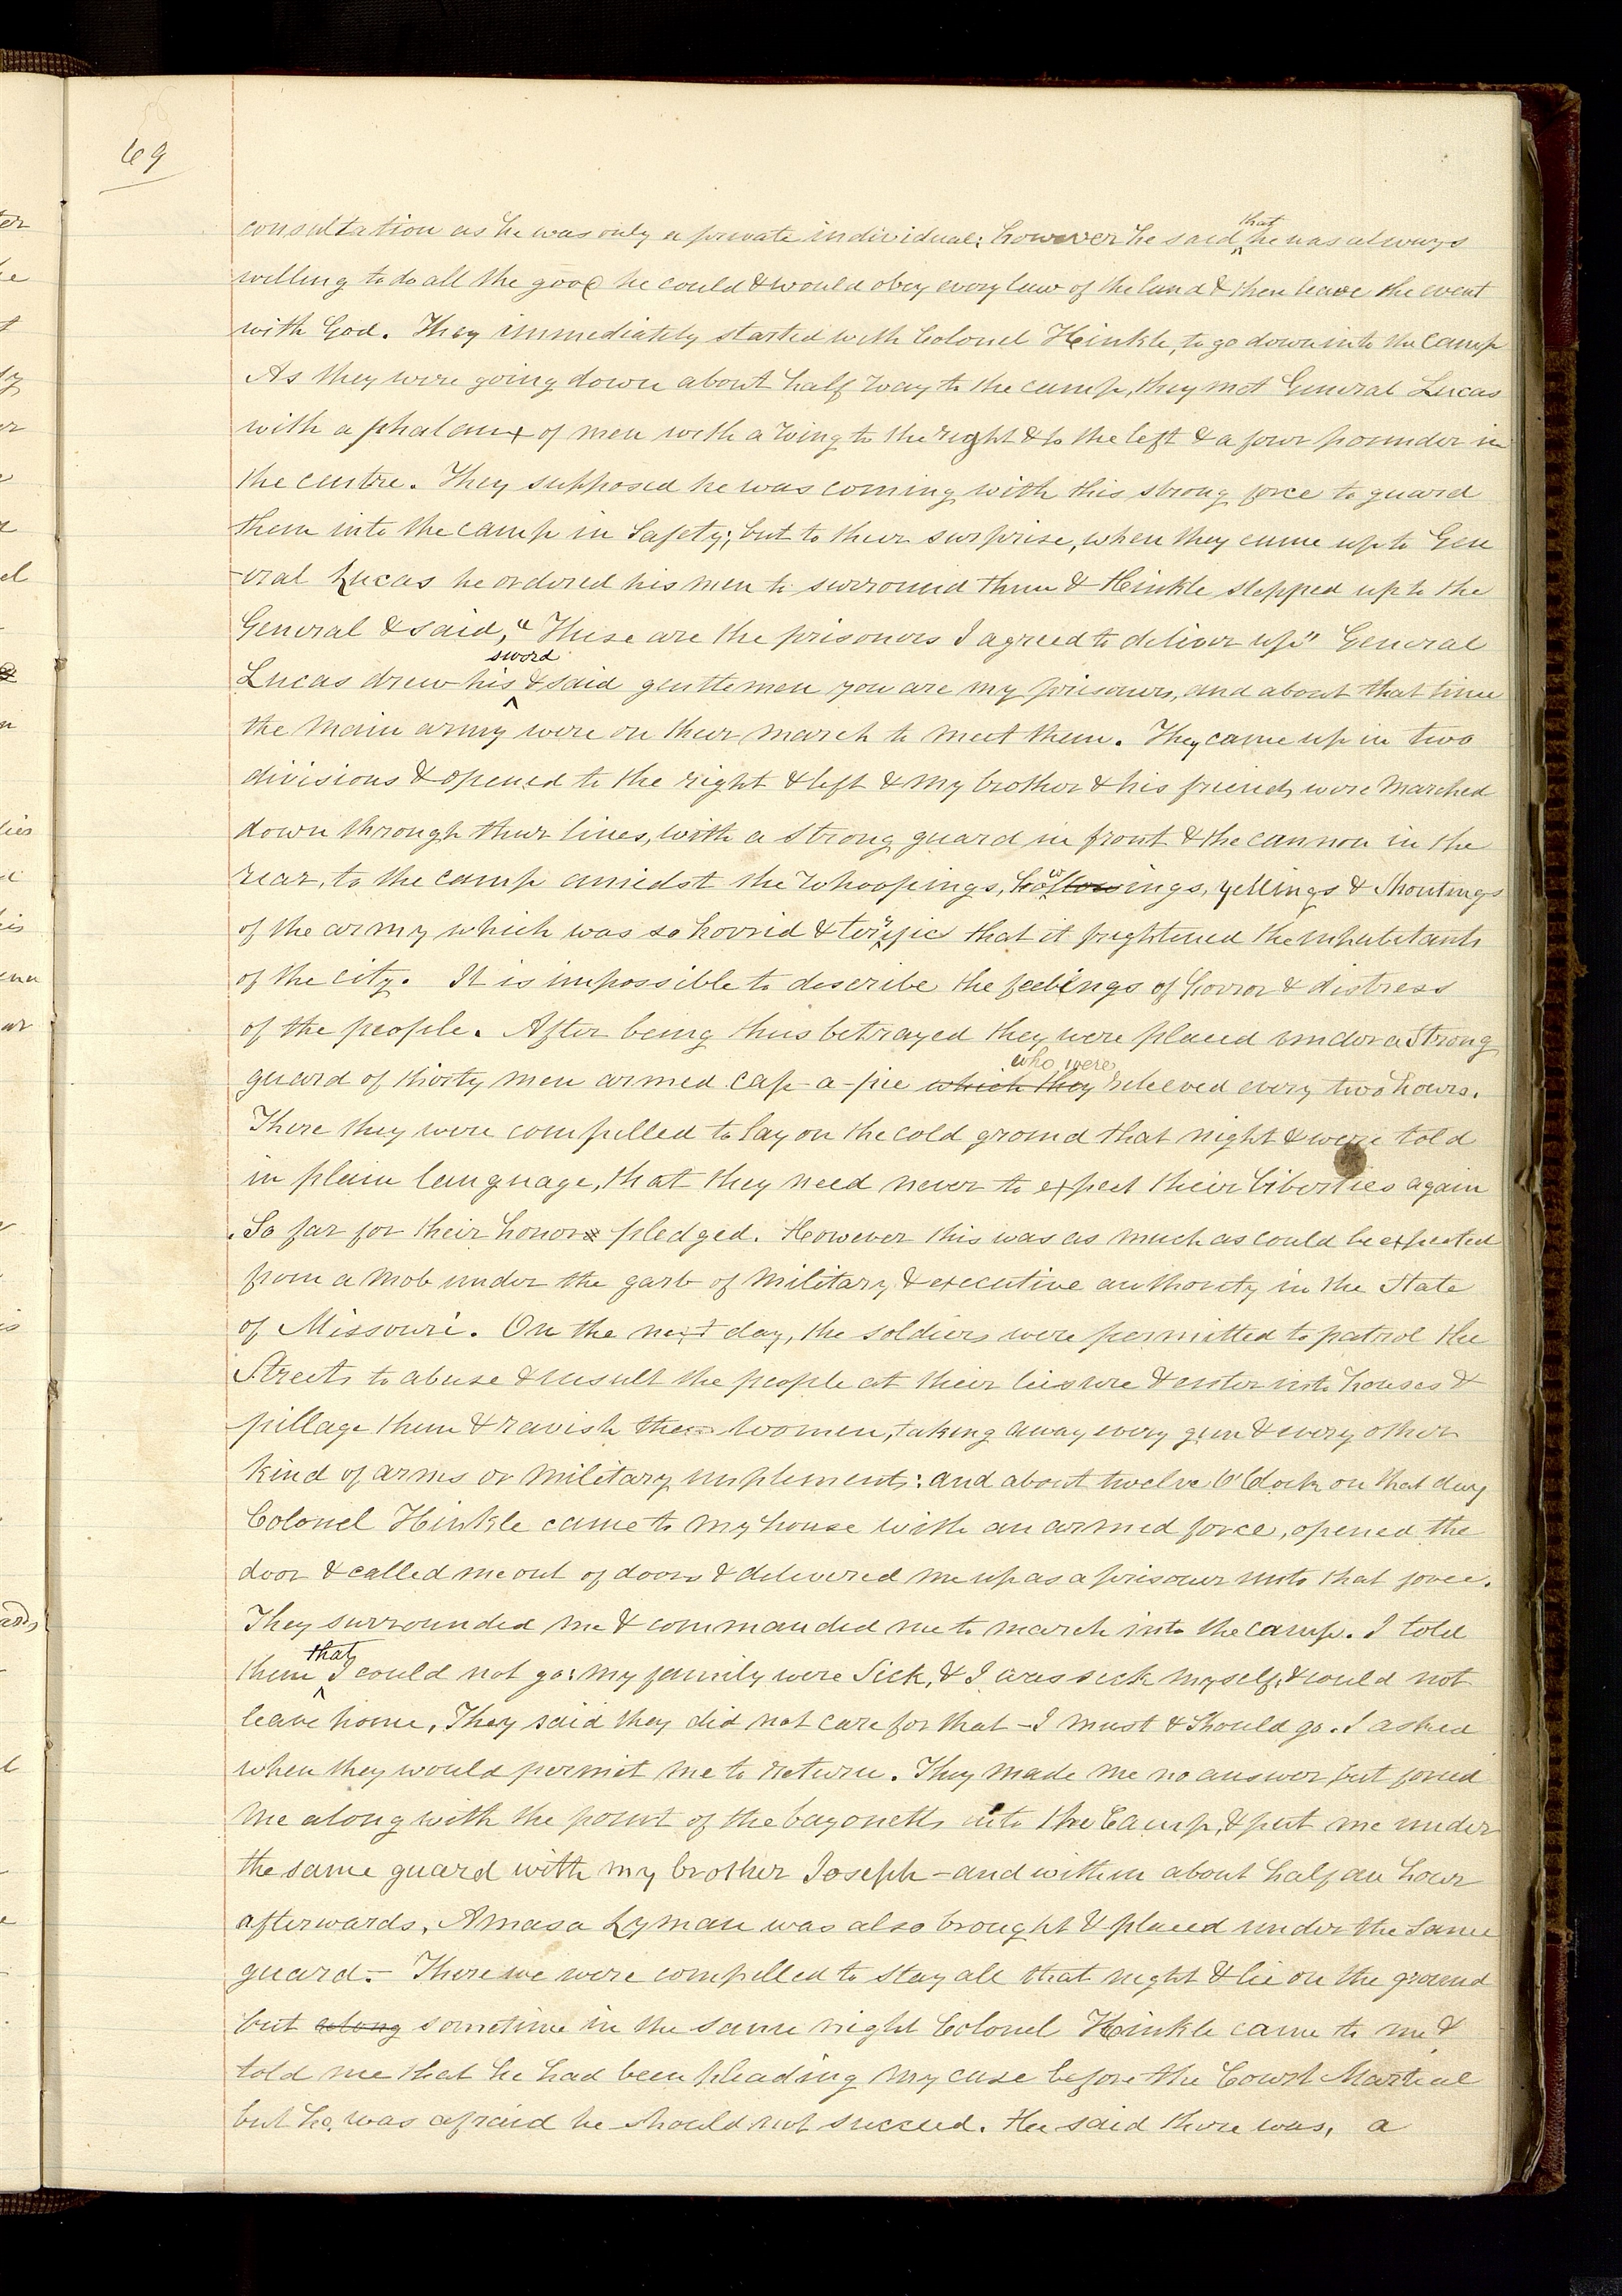 69
consultation as he was only a private individual; however he said that he was always
willing to do all the good he could & would obey every law of the land & then leave the event
with God. They immediately started with Colonel Hinkle, to go down into the camp
As they were going down about half way to the camp, they met General Lucas
with a phalanx of men with a wing to the right & to the left & a four pounder in
the centre. They supposed he was coming with this strong force to guard
them into the camp in Safety; but to their surprise, when they came up to Gen
-eral Lucas he ordered his men to surround them & Hinkle stepped up to the
General & said, "These are the prisoners I agreed to deliver up" General
Lucas drew his sword & said gentlemen you are my prisoners, and about that time
the main army were on their march to meet them. They came up in two
divisions & opened to the right & left & my brother & his friends were marched
down through their lines, with a strong guard in front & the cannon in the
rear, to the camp amidst the whoopings, howlings, yellings & shoutings
of the army which was so horrid & terrific that it frightened the inhabitants
of the city. It is impossible to describe the feelings of horror & distress
of the people. After being thus betrayed they were placed under a strong
guard of thirty men armed cap-a-pie which they who were relieved every two hours.
There they were compelled to lay on the cold ground that night & were told
in plain language, that they need never to expect their liberties again
. So far for their honor pledged. However this was as much as could be expected
from a mob under the garb of military & executive authority in the State
of Missouri. On the next day, the soldiers were permitted to patrol the
Streets to abuse & insult the people at their leisure & enter into houses &
pillage them & ravish the women, taking away every gun & every other
kind of arms or military implements: and about twelve O'Clock on that day
Colonel Hinkle came to my house with an armed force, opened the
door & called me out of doors & delivered me up as a prisoner unto that force.
They surrounded me & commanded me to march into the camp. I told
them that I could not go: my family were Sick, & I was sick myself, & could not
leave home. They said they did not care for that - I must & should go. I asked
when they would permit me to return. They made me no answer, but forced
me along with the point of the bayonetts into the Camp, & put me under
the same guard with my brother Joseph - and within about half an hour
afterwards, Amasa Lyman was also brought & placed under the same
guard. - There we were compelled to stay all that night & lie on the ground
but along sometime in the same night Colonel Hinkle came to me &
told me that he had been pleading my case before the Court Martial
but he was afraid he should not succeed. He said there was, a